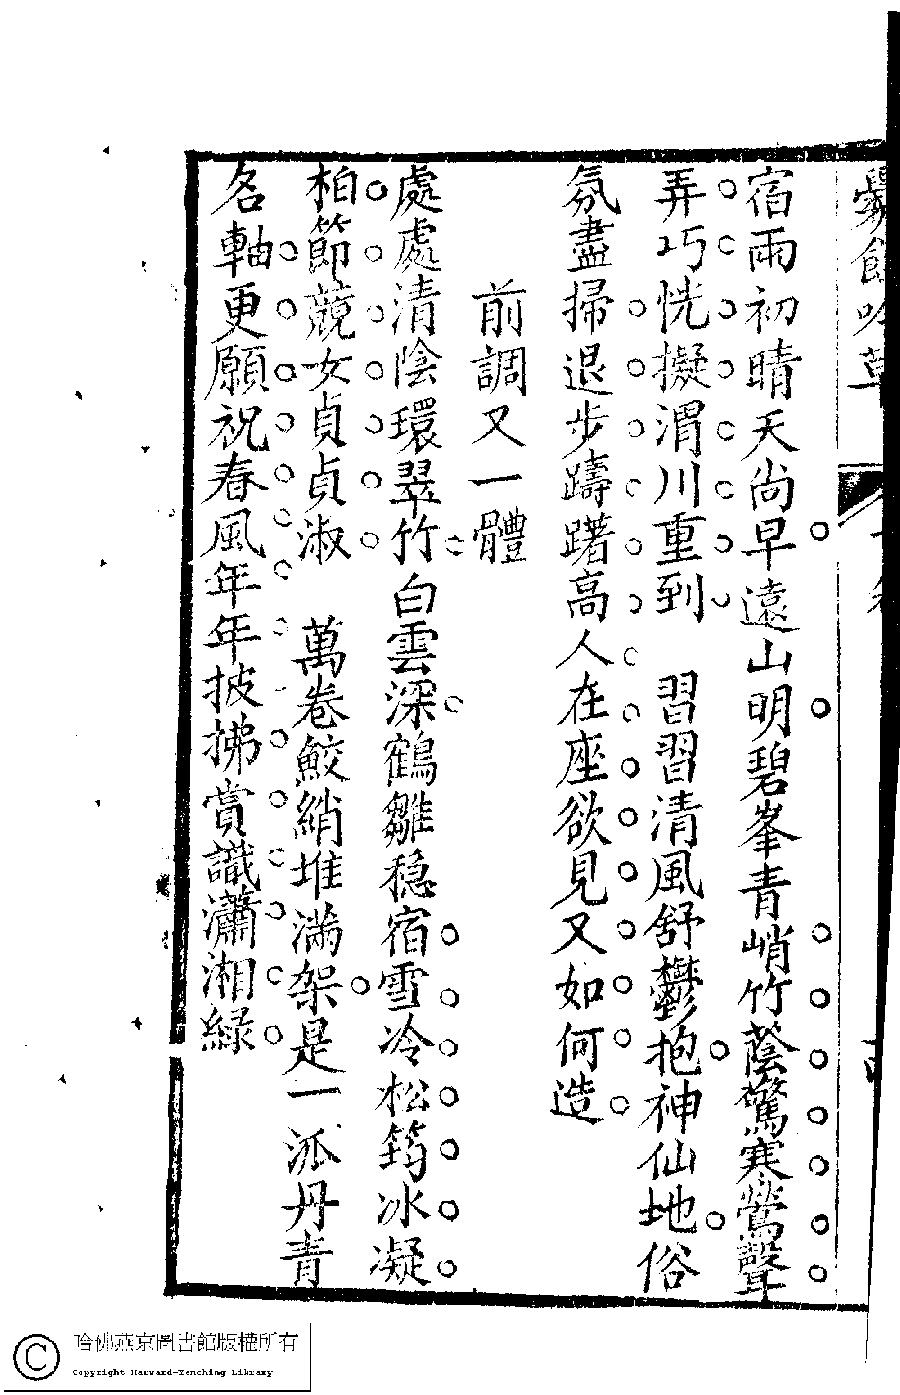 宿雨初晴天尚早遠山明碧峯青峭竹蔭驚寒鶯聲
弄巧恍擬渭川重到　習習清風舒鬱抱神仙地俗
氛盡掃退步躊躇高人在座欲見又如何造
前調又一體
處處清陰環翠竹白雲深鶴雛穏宿雪冷松筠冰凝
柏節競女貞貞淑　萬卷鮫綃堆滿架是一派丹青
名軸更願祝春風年年披拂賞識瀟湘緑
哈佛燕京圖書館版權所有
Copyright Harvard-Yenching Library